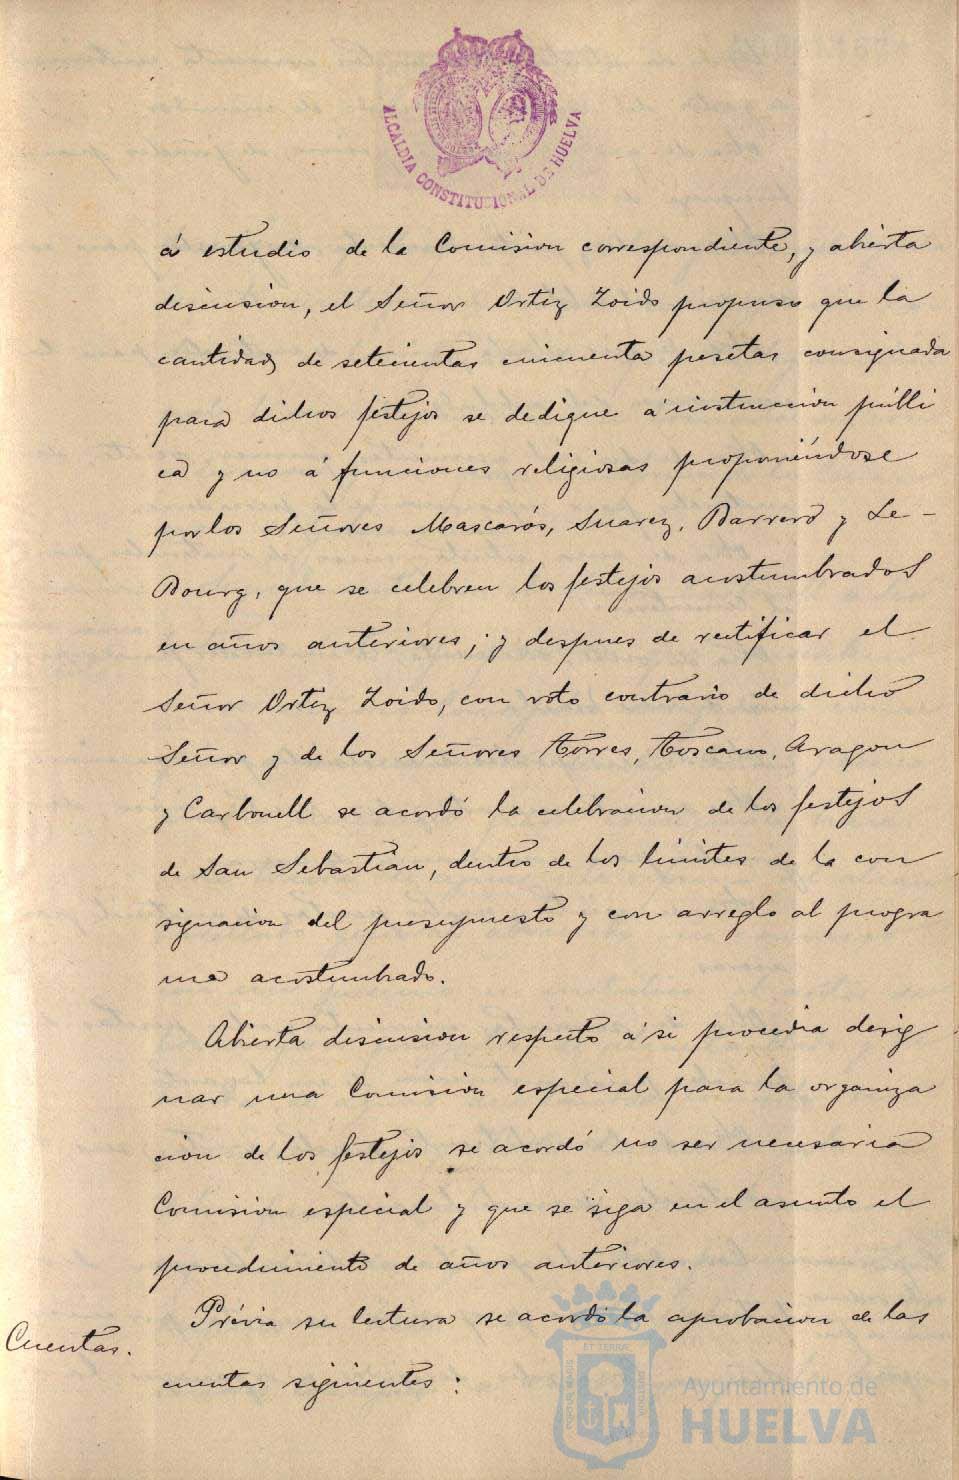 ALCALDIA CONSTITUCIONAL DE HUELVA
á estudio de la Comision correspondiente, y abierta
discusion, el Señor Ortiz Zoido propuso que la
cantidad de setecientas cincuenta pesetas consignada
para dichos festejos se dedique á instruccion públi
ca y no á funciones religiosas proponiéndose
por los Señores Mascarós, Suarez, Barrero y Le-
Bourg, que se celebren los festejos acostumbrados
en años anteriores; y despues de rectificar el
Señor Ortiz Zoido, con voto contrario de dicho
Señor y de los Señores Torres, Toscano, Aragon
y Carbonell se acordó la celebracion de los festejos
de San Sebastián, dentro de los limites de la con
signacion del presupuesto y con arreglo al progra
ma acostumbrado.
Abierta discusion respecto á si procedia desig
nar una Comision especial para la organiza
cion de los festejos se acordó no ser necesaria
Comision especial y que se siga en el asunto el
procedimiento de años anteriores.
Cuentas.
Prévia su lectura se acordó la aprobacion de las
cuentas siguientes:
Ayuntamiento de
HUELVA